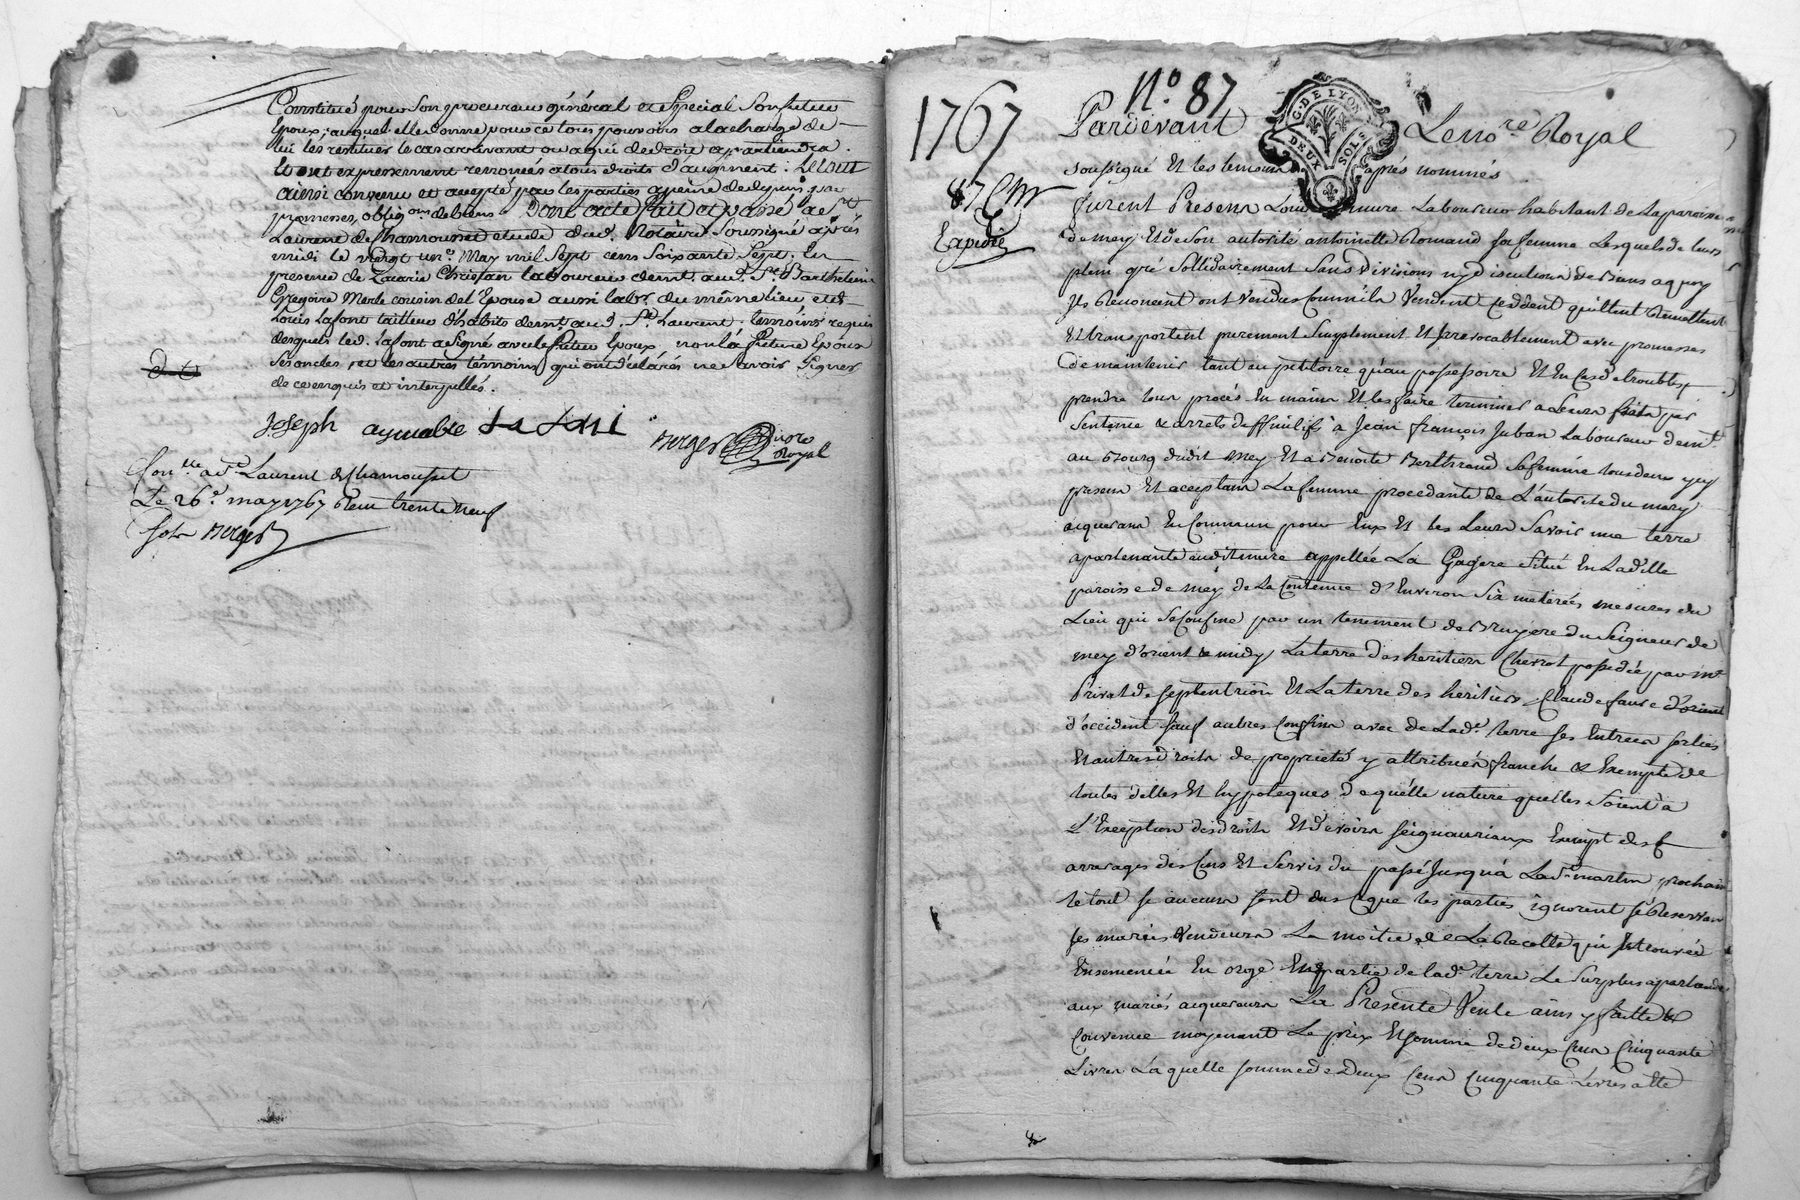 Constitué pour son procureur général et special son futur
Epoux, auquel elle donne pour ce tous pouvoirs a la charge de
lui les restituer le cas arrivant ou a qui de droit apartiendra.
Et ont expressement renoncés a tous droits d'augment. Le tout
ainsi convenu et accepté par les parties a peine de depens, par
promesses, oblig.ons de biens. Dont acte fait et passé a St
Laurent de Chamousset etude dud. Notaire soussigné après
midi le vingt un.e May mil Sept cens soixante Sept. En
presence de Zacarie Chrietan laboureur demt. aud. St Barthelemi
Gregoire Merle cousin de l'Epouse aussi labr. du même lieu, et de
Louis Lafont tailleur d'habits demt. aud. St. Laurent. temoins requis
desquels led. Lafont a signé avec le futur Epoux. non la future Epouse
ses oncles, et les autres témoins qui ont déclarés ne savoir signer
de ce enquis et interpellés.
Joseph aymable La font
Berger Nore Royal
Con.lle a St Laurent de Chamousset
Le 26e. may 1767 Reçu trente neuf
sols Berger
1767
No. 87
G. DE LYON
DEUX SOLS
Pardevant Le no.re Royal
soussigné Et les temoins après nommés
87
furent Presens Louis mure Laboureur habitant de La paroisse
de mey Et de son autorité antoinette Romand sa femme Lesquels de leurs
plein gré Sollidairement Sans divisions ny discution de Biens a quoy
Ils Renoncent ont vendus Comme ils Vendent Ceddent quittent Remettent
Et transportent purement Simplement Et Irrevocablement avec promesses
de maintenir tant au petitoire qu'au possessoire Et En Cas de troubles
prendre tous procès En mains Et les faire terminer a Leurs frais par
Sentence & arrets deffinitifs à Jean françois Juban Laboureur demt
au Bourg dudit mey Et a Benoite Berthrand sa femme tous deux icy
presens Et aceptans La femme procedante de L'autorité du mary
aquerans En Commun pour Eux Et les Leurs Savoir une terre
apartenante audit mure appellée La Gagere situé En Laditte
paroisse de mey de La Contenue d'Environ Six meterées mesures du
Lieu qui se Confine par un tenement de Bruyere du seigneur de
mey d'orient & midy La terre des heritiers Cherrot possedée par mr
Privat de septentrion Et La terre des heritiers Claude faure d'orient
d'occident sauf autres Confins avec de Lade. terre ses Entrées sorties
Et autres droits de proprieté y attribués franche & Exempte de
toutes dettes Et hyppoteques de quelle nature quelles soient à
L'Exception des droits Et devoirs seigneuriaux Exempt des
arrerages des Cens Et Servis du passé Jusqu'à La St martin prochain
le tout si aucuns sont dus Ce que les parties ignorent se Reservans
les mariés vendeurs La moitié de La Recolte qui se trouvée
Ensemencée En orge En partie de lade. terre Le surplus apartenant
aux mariés aquereurs La Presente Vente ainsy faitte &
Convenue moyenant Le prix Et somme de deux Cens Cinquante
Livres Laquelle somme de Deux Cens Cinquante Livres a été